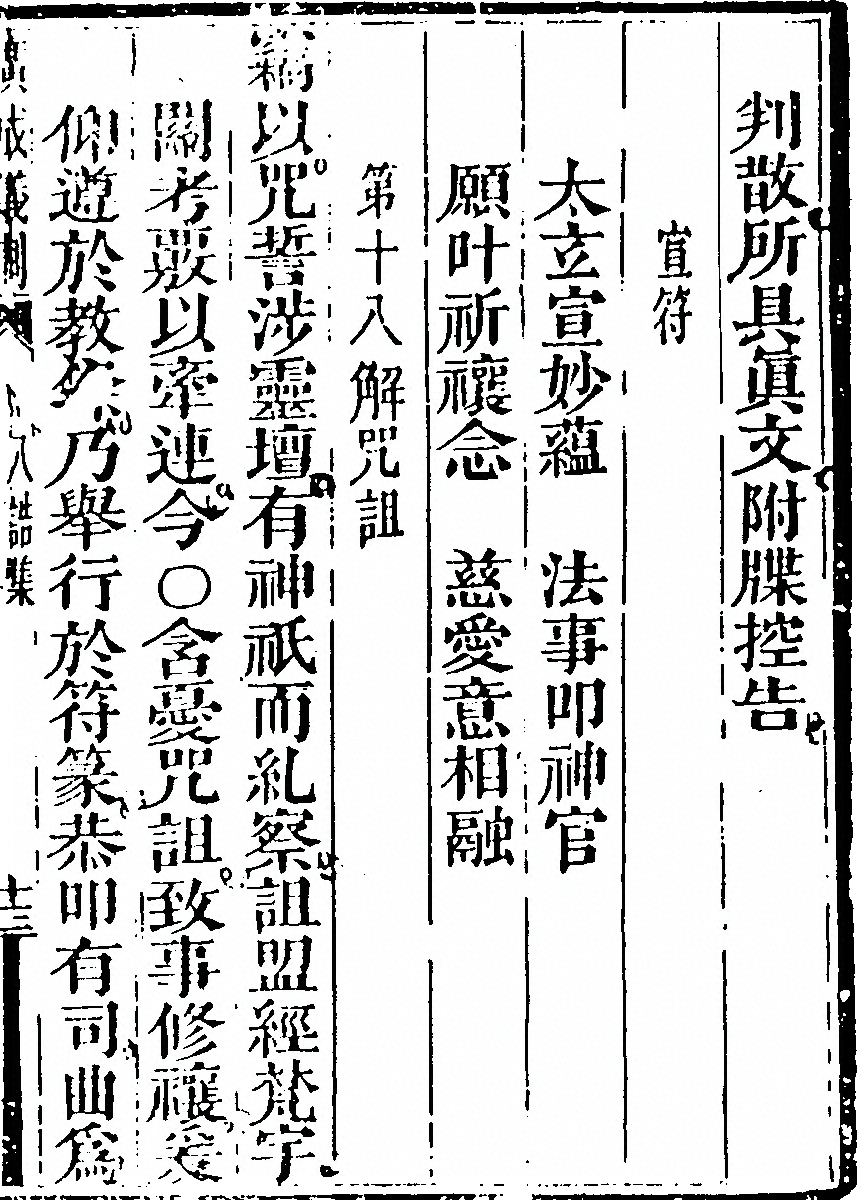 判散所具眞文附牒控告
宣符
太立宣妙蘊　法事叩神官
願叶祈禳念　慈愛意相融
第十八解咒詛
竊以咒誓涉靈壇有神祇而糺察詛盟經梵宇
關考覈以牽連今〇含憂咒詛致事修禳爰
仰遵於教乃舉行於符篆恭叩有司曲爲
廣成儀制　八詛集　十三